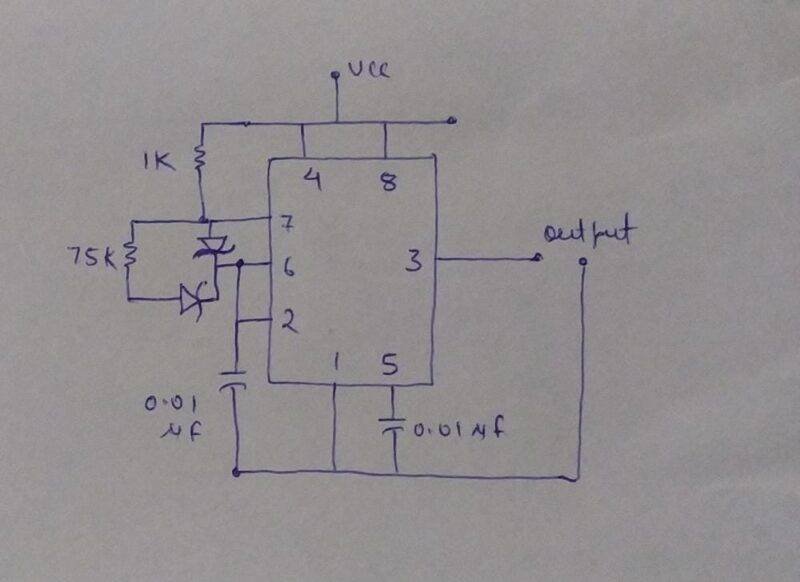 VCC
1K
4 8
7
75K
6
3
output
2
1 5
0.01
μf
0.01 μf